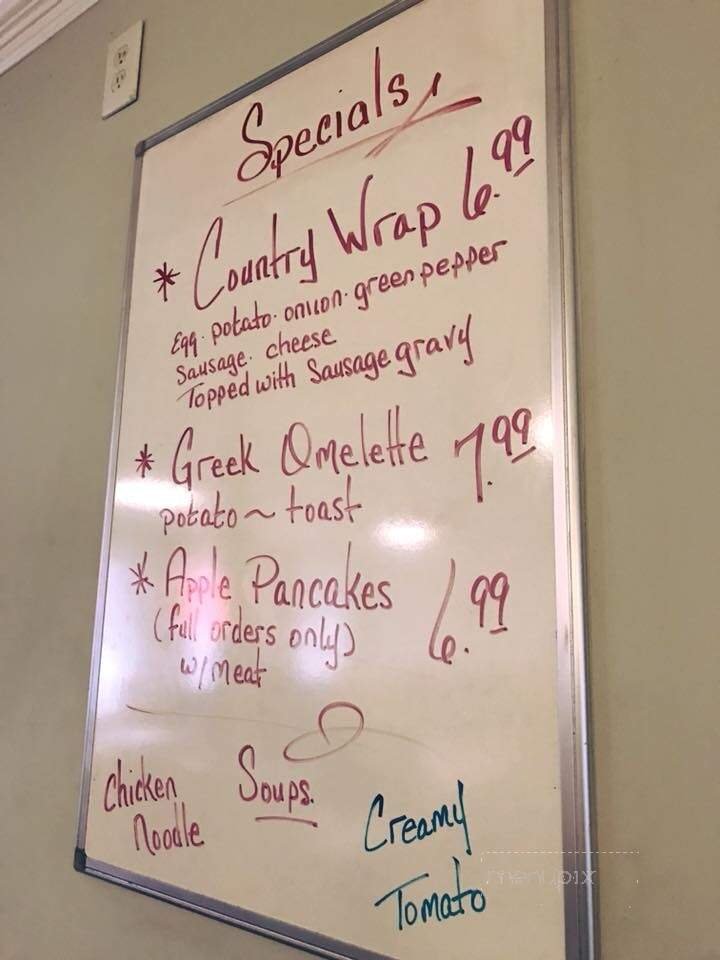 Specials
* Country Wrap 6.99
Egg. potato. onion. green pepper
Sausage. cheese
Topped with Sausage gravy
* Greek Omelette 7.99
potato ~ toast
* Apple Pancakes 6.99
(full orders only)
w/meat
Soups.
Chicken
Noodle
Creamy
Tomato
menupix